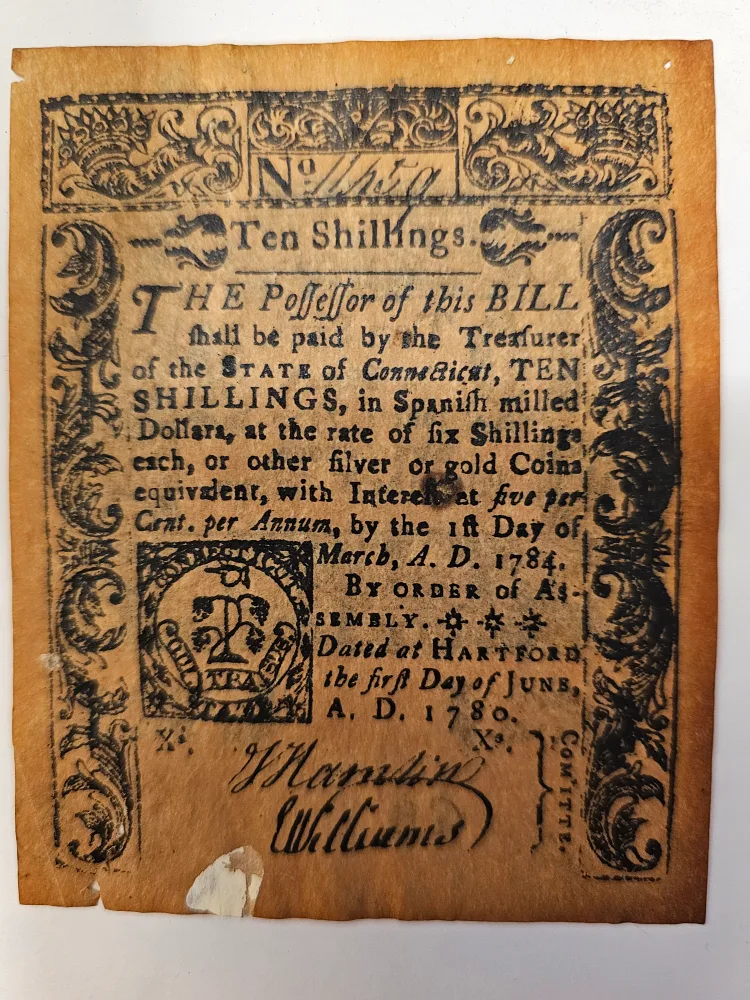 No 11459
Ten Shillings.
THE Poſſeſſor of this BILL
ſhall be paid by the Treaſurer
of the STATE of Connecticut, TEN
SHILLINGS, in Spaniſh milled
Dollars, at the rate of ſix Shillings
each, or other ſilver or gold Coins
equivalent, with Intereſt at five per
Cent. per Annum, by the 1ſt Day of
March, A. D. 1784.
BY ORDER of AS-
SEMBLY.
Dated at HARTFORD
the firſt Day of JUNE,
A. D. 1780.
CONNECTICUT
Xs. Xs.
Williams
COMITTE.